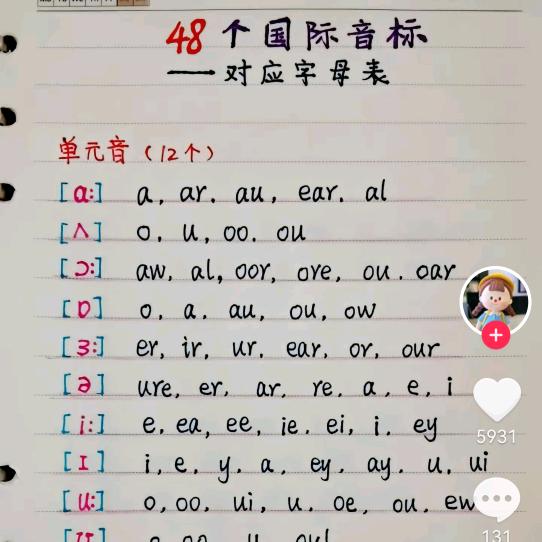 48个国际音标
——对应字母表
单元音（12个）
[ɑ:] a, ar, au, ear, al
[ʌ] o, u, oo, ou
[ɔ:] aw, al, oor, ore, ou, oar
[ɒ] o, a, au, ou, ow
[ɜ:] er, ir, ur, ear, or, our
[ə] ure, er, ar, re, a, e, i
[i:] e, ea, ee, ie, ei, i, ey
[ɪ] i, e, y, a, ey, ay, u, ui
[u:] o, oo, ui, u, oe, ou, ew
5931
131